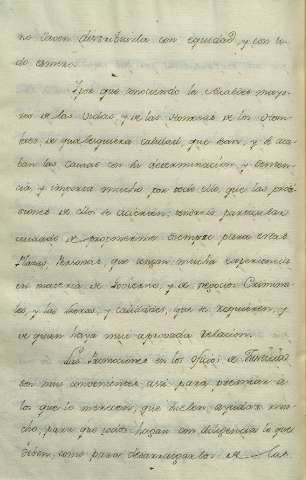 no deven distribuirla con equidad, y con to
do esmero.
Y por que conociendo los Alcaldes mayo
res de las vidas, y de las Honras de los Hom
bres, de qualesquiera calidad, que sean, y se aca
ban las causas con su determinacion, y senten
cia, y importa mucho por todo ello, que las provi
siones de ellos se acierten, tendreis particular
cuidado de proponerme siempre para estas
Plazas, Personas, que tengan mucha experiencia
en materia de Govierno, y de negocios Crimina
les, y las Letras, y calidades, que se requieren, y
de quien haya mui aprovada relacion.
Las Promociones en los oficios de Justicia
son mui convenientes, assi para premiar a
los que lo merecen, que suelen ayudar mu
cho, para que todos hagan con diligencia lo que
deven, como para desarraigarlos de las